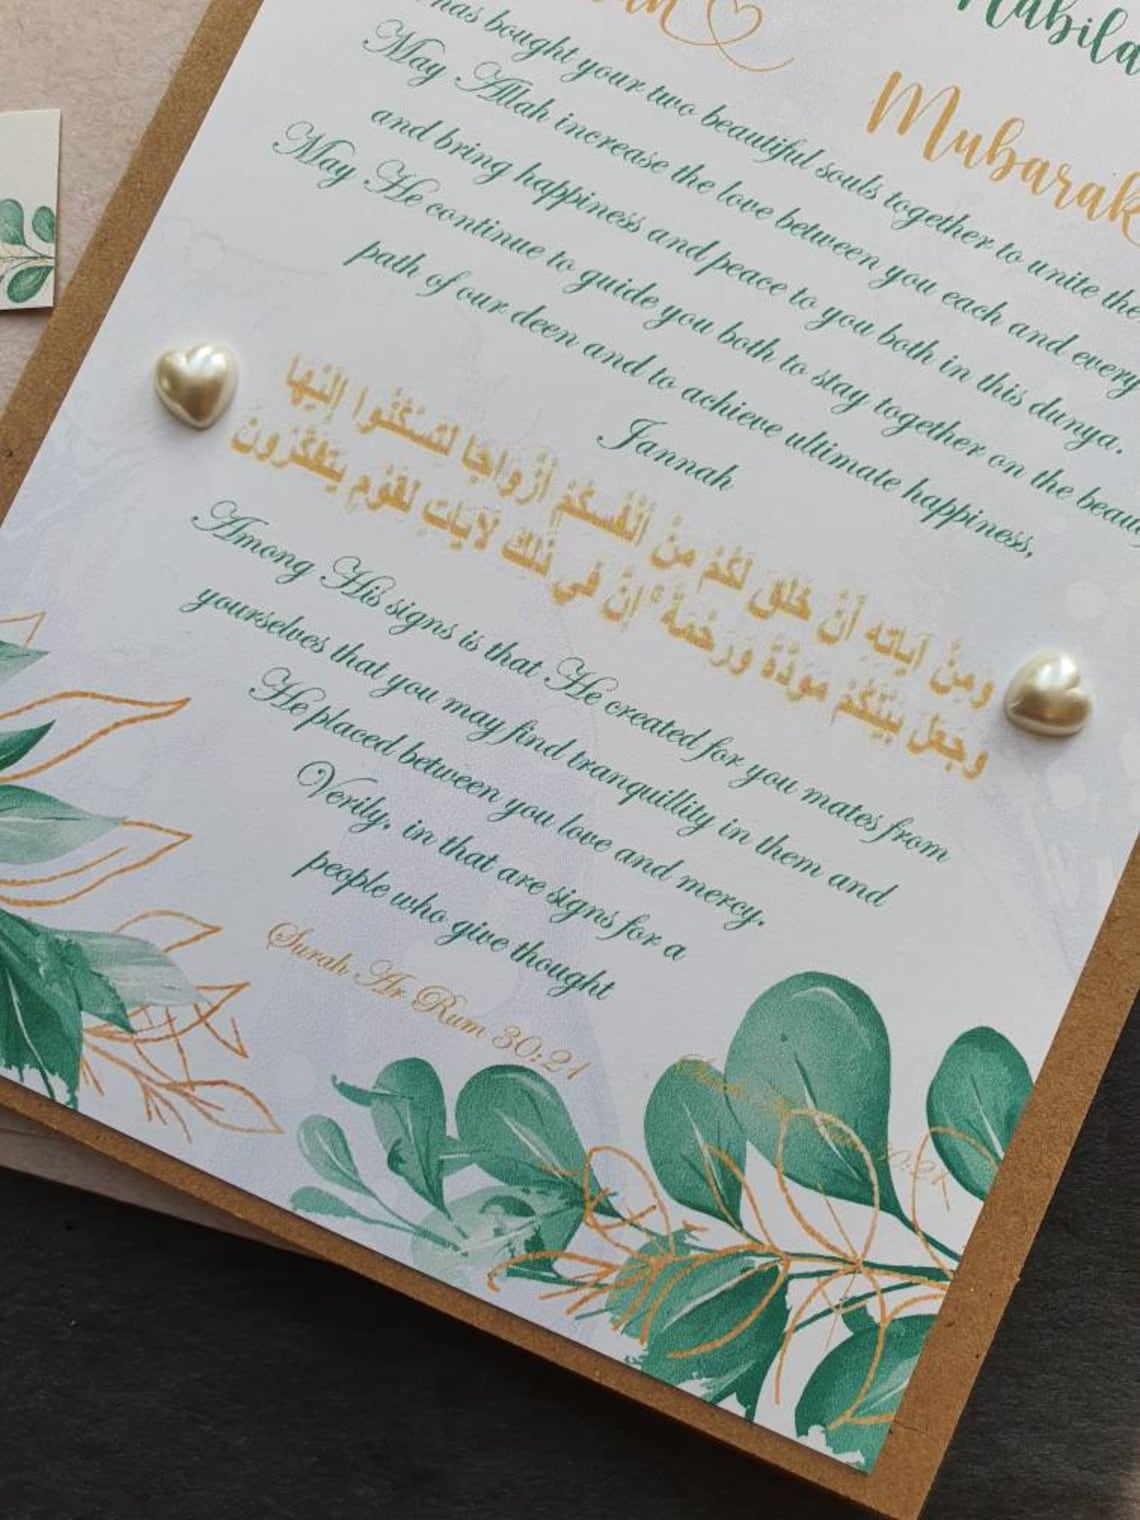 Nabila
Mubarak
has bought your two beautiful souls together to unite the
May Allah increase the love between you each and every
and bring happiness and peace to you both in this dunya.
May He continue to guide you both to stay together on the
path of our deen and to achieve ultimate happiness,
Jannah
ومِنْ آيَاتِهِ أَنْ خَلَقَ لَكُمْ مِنْ أَنْفُسِكُمْ أَزْوَاجًا لِتَسْكُنُوا إِلَيْهَا
وَجَعَلَ بَيْنَكُمْ مَوَدَّةً وَرَحْمَةً ۚ إِنَّ فِي ذَٰلِكَ لَآيَاتٍ لِقَوْمٍ يَتَفَكَّرُونَ
Among His signs is that He created for you mates from
yourselves that you may find tranquillity in them and
He placed between you love and mercy.
Verily, in that are signs for a
people who give thought
Surah Ar Rum 30:21